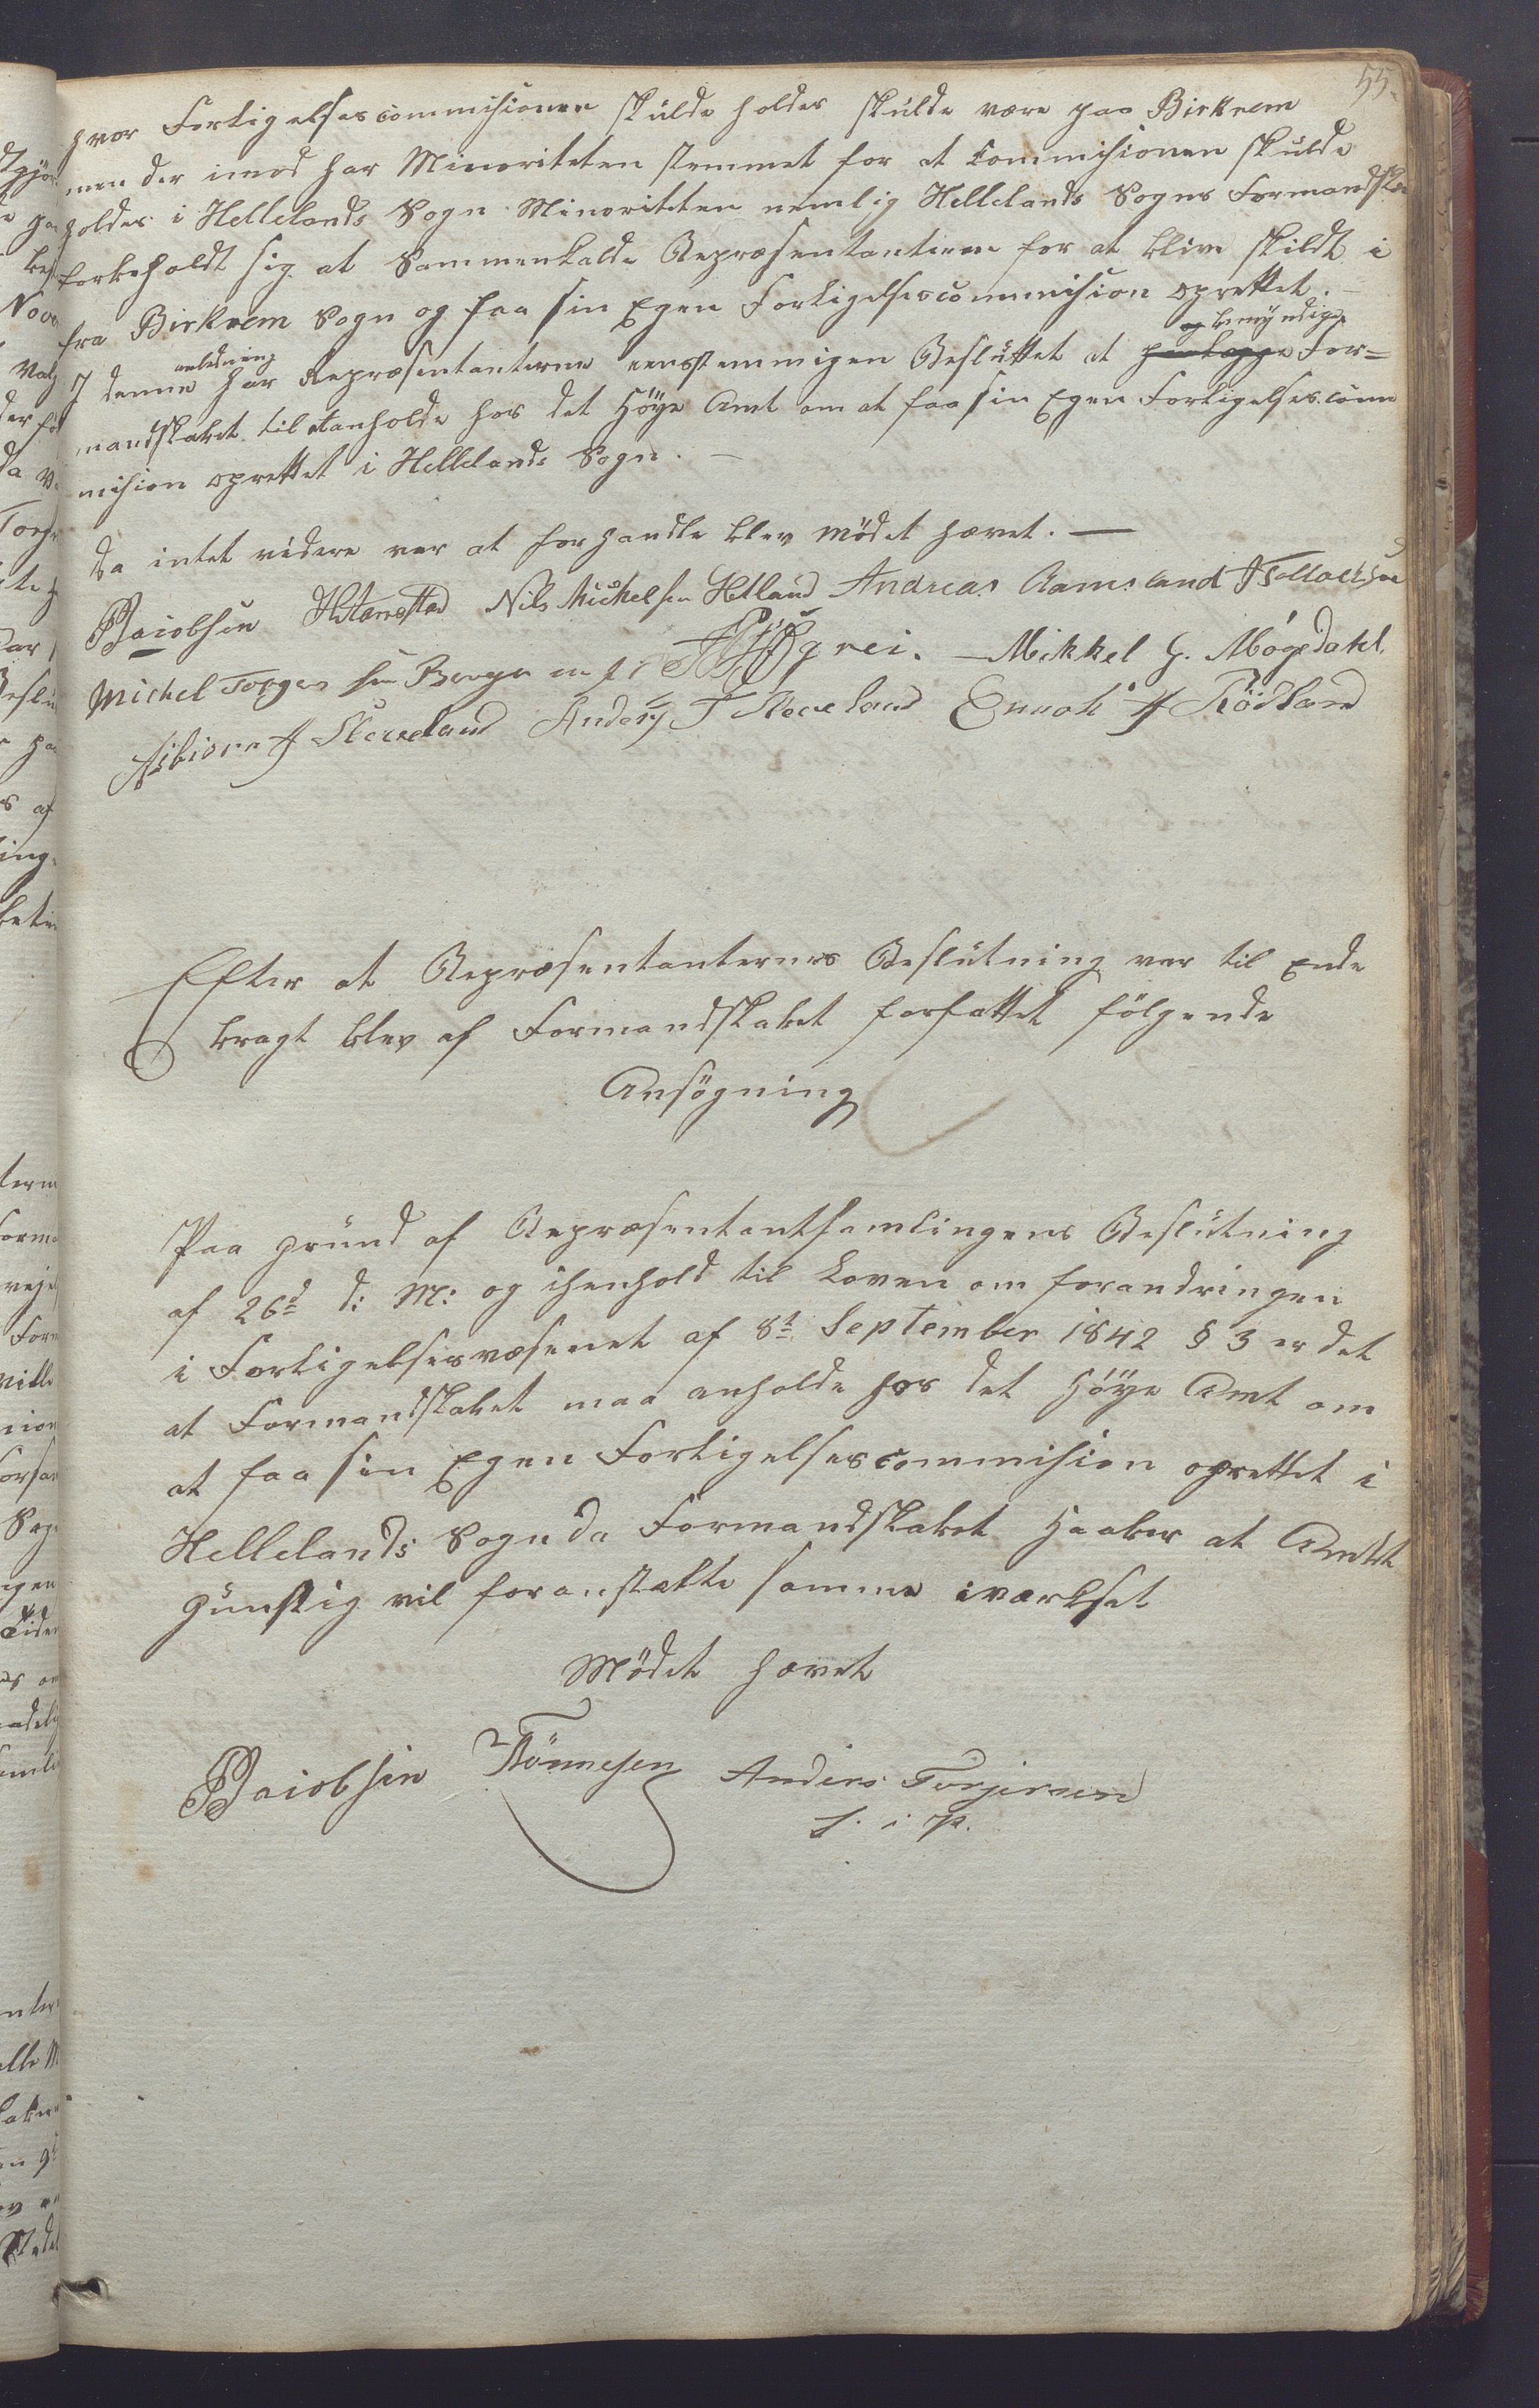 55.
hvor Forligelsescommisionen skulde holdes skulde være paa Birkrem
men der imod har Minoriteten stemmet for at Commisionen skulde
holdes i Hellelands Sogn. Minoriteten nemlig Hellelands Sogns Formandskab
forbeholdt sig at Sammenkalde Repræsentanterne for at blive skildt i
fra Birkrem Sogn og faa sin Egen Forligelsescommision oprettet. —
I denne anledning har Repræsentanterne eensstemmigen Besluttet at bemyndige For=
mandskabet til at anholde hos det Höye Amt om at faa sin Egen Forligelsescom
mision oprettet i Hellelands Sogn. —
Da intet videre var at forhandle blev mödet hævet. —
PJaiobsen Nils Mickelsen Hetland Andreas Aamesland
Michel Torgersen Berge Mikkel G. Mögedahl
Asbiörn Skeveland Anders T Skeveland Ennok Rödland
Efter at Repræsentanternes Beslutning var til Ende
bragt blev af Formandskabet forfattet fölgende
Ansögning
Paa grund af Repræsentantsamlingens Beslutning
af 26d d: M: og ihenhold til Loven om forandringen
i Forligelsesvæsenet af 8t September 1842 § 3 er det
at Formandskabet maa anholde hos det Höye Amt om
at faa sin Egen Forligelsescommision oprettet i
Hellelands Sogn da Formandskabet Haaber at Amtet
Gunstig vil foranstalte samme iværkset
Mödet hævet
PJaiobsen Tönnesen Anders Torjersen
f. i P.